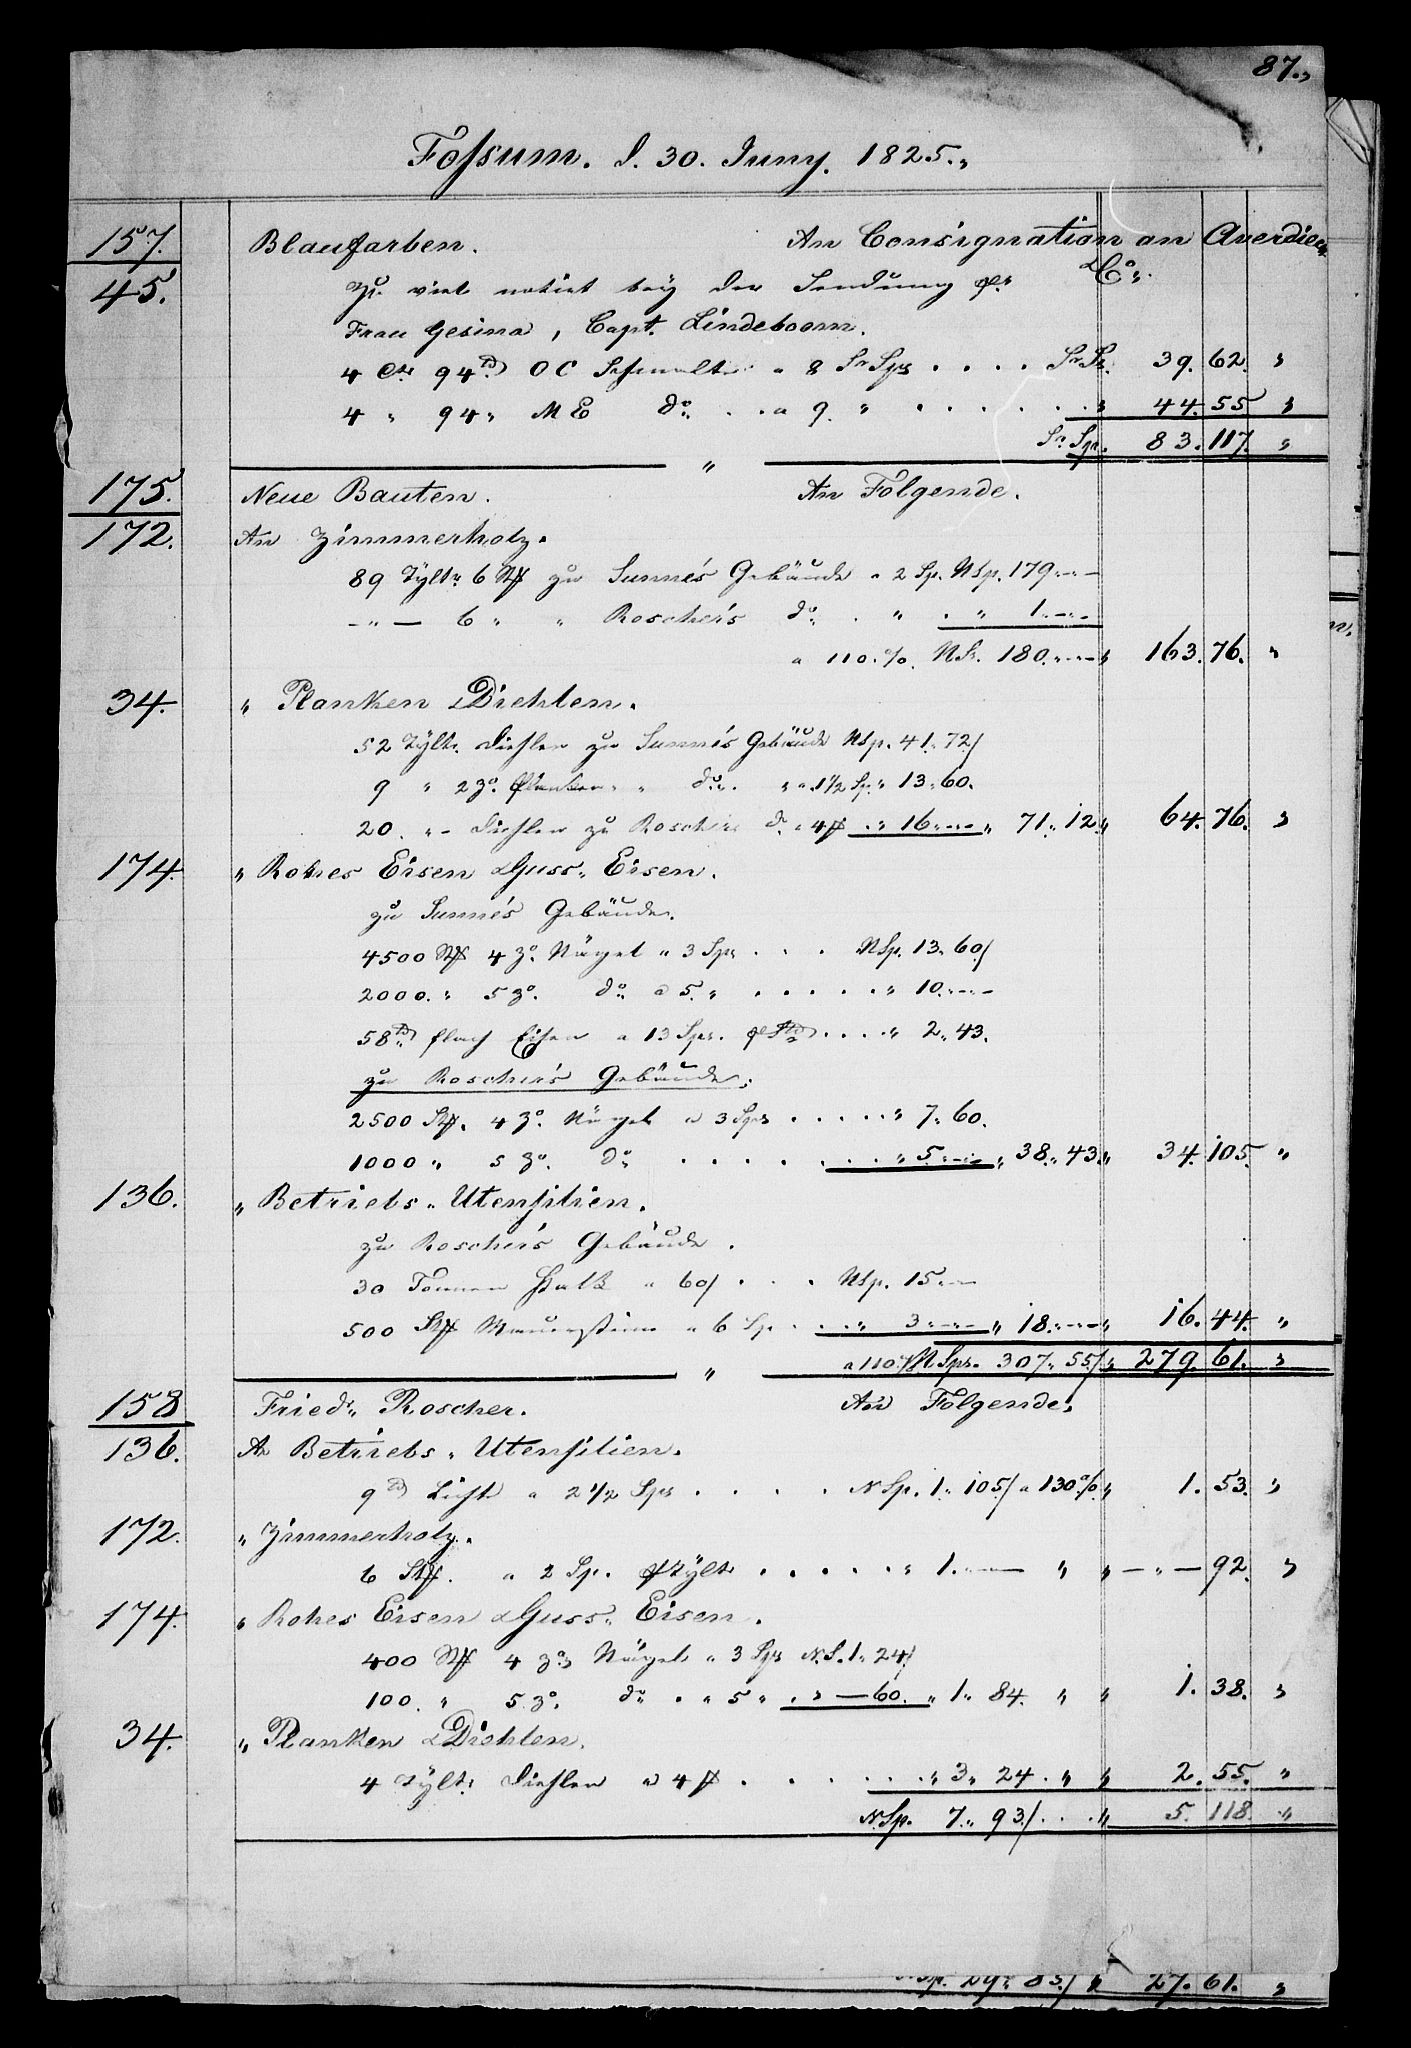 87.,
Fossum. d. 30. Juny. 1825.,
157. Blaufarben. An Consignation an Averdieck
45. Zu viel notirt bey der Sendung pr & Co.
Frau Gesina, Capt. Lindeboom.
4 Ctr 94 ℔ OC Schmalte a 8 Sr Sps . . . . Sr.Sp. 39. 62. "
4 " 94 " ME do. . . a 9. " . . . . . . " 44. 55 "
Sr. Sps. 83. 117. "
175. Neue Bauten. An Folgende.
172. An Zimmerholz.
89 Tylt. 6 Stk zu Sunne's Gebäude a 2 Sp. NSp. 179.-.-
-"- 6 " " Roscher's do. . " . " 1.-.-
a 110.%. NS. 180.-.- " 163. 76. "
34. " Planken & Diehlen.
52 Tylt. Diehlen zu Sunne's Gebäude NSp. 41. 72/
9 " 2 zo. Planken " do. " a 1 1/2 Sp. " 13. 60.
20. " - Diehlen zu Roschers do. a 4 ß . " 16.-.- " 71. 12. " 64. 76. "
174. " Rohes Eisen & Guss. Eisen.
zu Sunne's Gebäude.
4500 Stk 4 zo. Nägel a 3 Sps . . . NSp. 13. 60/
2000. " 5 zo. do. a 5. " . . . . . " 10.-.-
58 ℔ flach Eisen a 13 Sps. . . . . " 2. 43.
zu Roscher's Gebäude.
2500 Stk. 4 zo. Nägel a 3 Sps . . . . . " 7. 60.
1000 " 5 zo. do. . . . . . . . " 5.-.- " 38. 43. " 34. 105. "
136. " Betriebs. Utensilien.
zu Roscher's Gebäude.
30 Tonnen Kalk a 60/ . . . NSp. 15.-
500 Stk Mauersteine a 6 Sp . . . " 3.-.- " 18.-.- " 16. 44. "
" a 110.% N.Sps. 307. 55/ " 279. 61. "
158 Friedr. Roscher. An Folgende.
136. An Betriebs. Utensilien.
9 ℔ Licht a 2 1/2 Sps . . . . N Sp. 1. 105/ a 130% " 1. 53. "
172. " Zimmerholz.
6 Stk. a 2 Sp. p Tylt . . . . . " 1.-.- " " -"- 92. "
174. " Rohes Eisen & Guss. Eisen.
400 Stk 4 zo. Nägel a 3 Sps N.S. 1. 24/
100. " 5 zo. do. . a 5 " . " - 60. " 1. 84. " " 1. 38. "
34. " Planken & Diehlen.
4 Tylt. Diehlen a 4 ß . . . . . . . " 3. 24. " " 2. 55. "
N.Sp. 7. 93/ . . " 5. 118. "
NSp. 29. 83/ " 27. 61. "